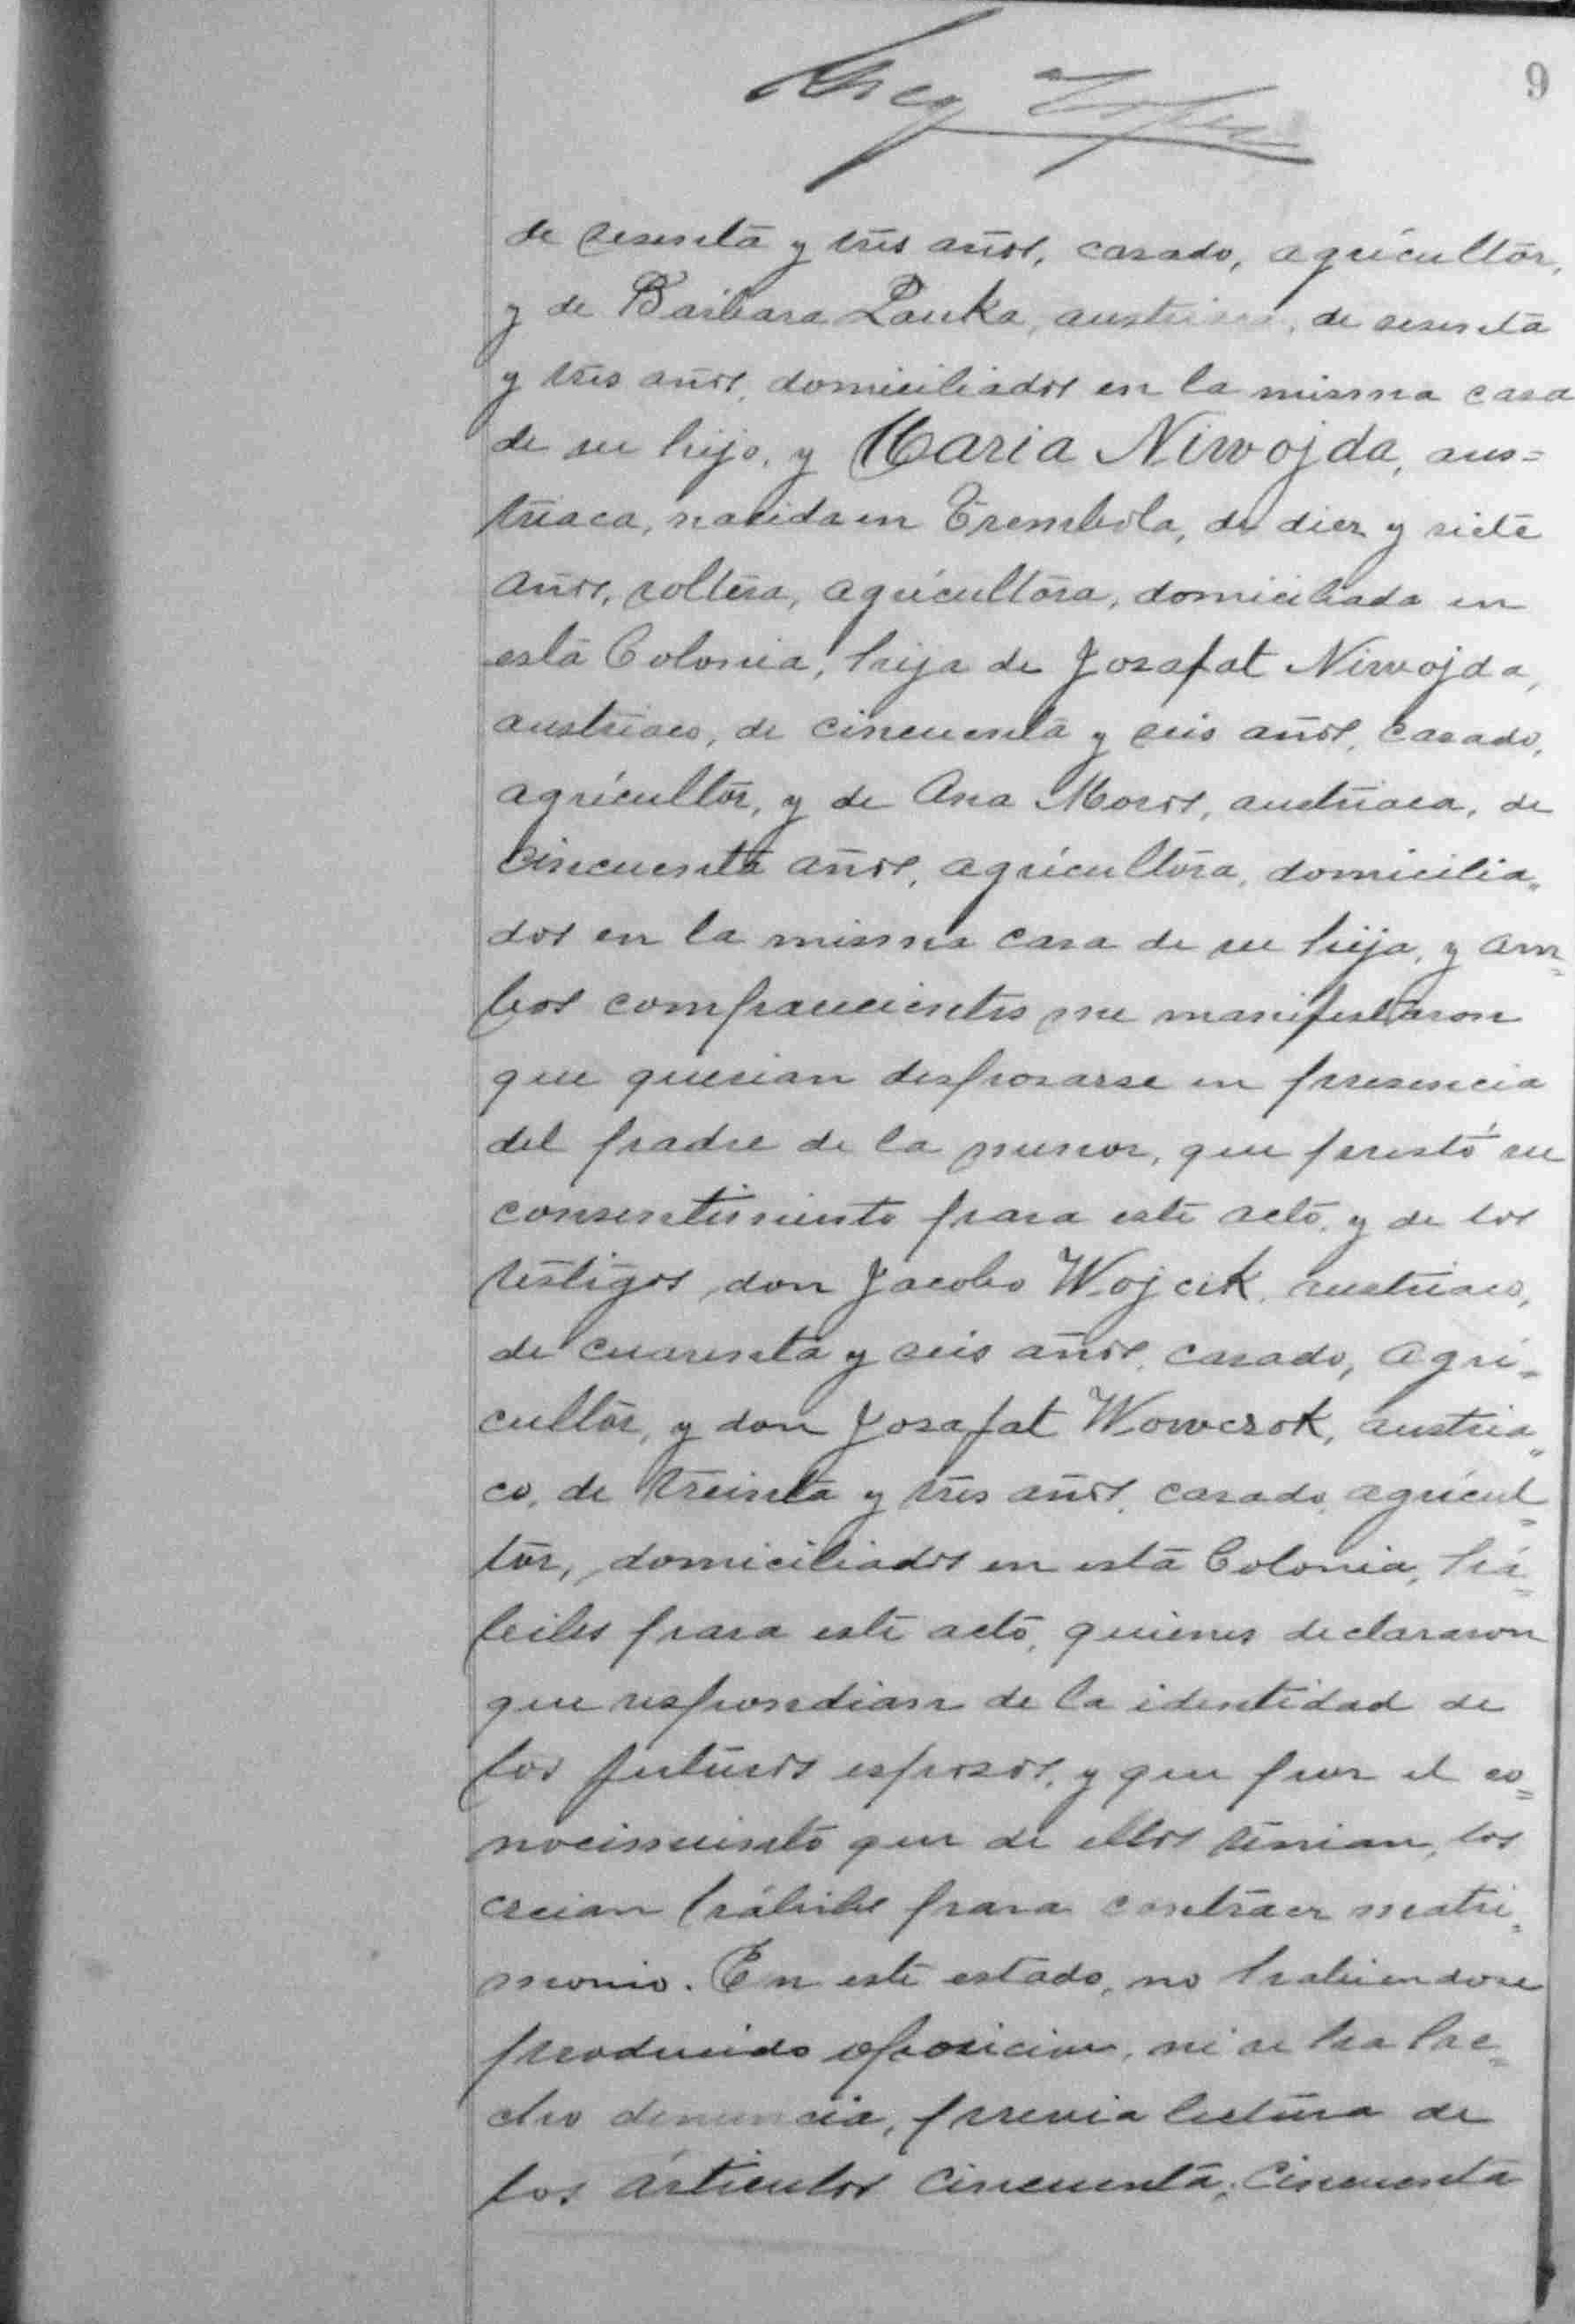 9
de sesenta y tres años, casado, agricultor,
y de Barbara Pauka, austriaca, de sesenta
y tres años, domiciliados en la misma casa
de su hijo, y Maria Niwojda, aus=
triaca, nacida en Trembola, de diez y siete
años, soltera, agricultora, domiciliada en
esta Colonia, hija de Josafat Niwojda,
austriaco, de cincuenta y seis años, casado,
agricultor, y de Ana Moros, austriaca, de
cincuenta años, agricultora, domicilia=
dos en la misma casa de su hija, y am=
bos comparecientes me manifestaron
que querian desposarse en presencia
del padre de la menor, que prestó su
consentimiento para este acto, y de los
testigos, don Jacobo Wojcik, austriaco,
de cuarenta y seis años, casado, agri=
cultor, y don Josafat Wowczok, austria=
co, de treinta y tres años, casado, agricul=
tor, domiciliados en esta Colonia, há=
biles para este acto, quienes declararon
que respondian de la identidad de
los futuros esposos, y que por el co=
nocimiento que de ellos tenian, los
creian hábiles para contraer matri=
monio. En este estado, no habiendose
producido oposicion, ni se ha he=
cho denuncia, previa lectura de
los árticulos cincuenta, cincuenta